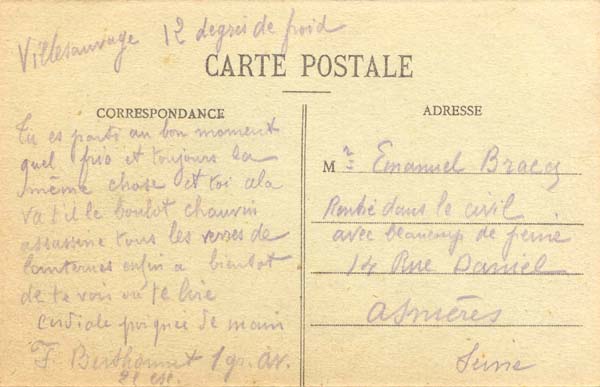 Villesauvage 12 degrés de froid
CARTE POSTALE
CORRESPONDANCE
ADRESSE
Tu es parti au bon moment
quel frio et toujours la
même chose et toi cela
va t'il le boulot chauvin
assassine tous les verres de
lanternes enfin a bientot
de te voir ou te lire
cordiale poignée de main
F
Mr Emanuel
dans le civil
avec beaucoup de peine
14 Rue Daniel
Asnières
Seine